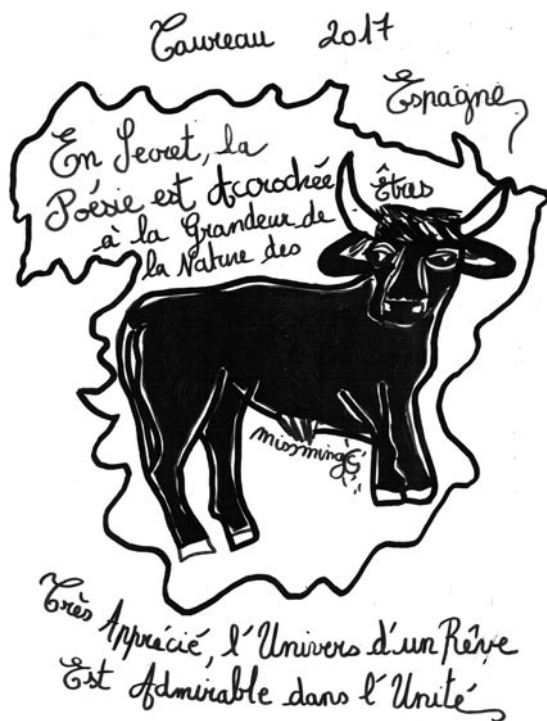 Taureau 2017
Espagne
En Secret, la
Poésie est Accrochée
à la Grandeur de
la Nature des
Êtres
missming
Très Apprécié, l'Univers d'un Rêve
Est Admirable dans l'Unité